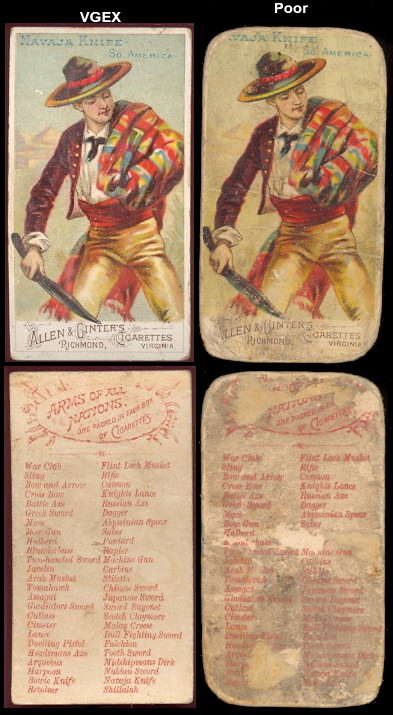 VGEX
Poor
NAVAJA KNIFE
SO. AMERICA.
ALLEN & GINTER'S CIGARETTES
RICHMOND, VIRGINIA
VAJA KNIFE
SO. AMERICA
ALLEN & GINTER'S CIGARETTES
RICHMOND, VIRGINIA
ARMS OF ALL
NATIONS.
ONE PACKED IN EACH BOX
OF CIGARETTES
War Club Flint Lock Musket
Sling Rifle
Bow and Arrow Cannon
Cross Bow Knights Lance
Battle Axe Russian Axe
Greek Sword Dagger
Mace Abyssinian Spear
Bow Gun Saber
Halberd Poniard
Blunderbuss Rapier
Two-handed Sword Machine Gun
Javelin Carbine
Arab Musket Stiletto
Tomahawk Chinese Sword
Assagai Japanese Sword
Gladiators Sword Sword Bayonet
Cutlass Scotch Claymore
Cimeter Malay Creese
Lance Bull Fighting Sword
Duelling Pistol Falchion
Headsmans Axe Tooth Sword
Arquebus Midshipmans Dirk
Harpoon Nubian Sword
Bowie Knife Navaja Knife
Revolver Shillalah
NATIONS
ONE PACKED IN EACH BOX
OF CIGARETTES
War Club Flint Lock Musket
Sling Rifle
Bow and Arrow Cannon
Cross Bow Knights Lance
Battle Axe Russian Axe
Greek Sword Dagger
Mace Abyssinian Spear
Bow Gun Saber
Halberd
Sword Machine Gun
Carbine
Tomahawk Chinese Sword
Assagai Japanese Sword
Sword Bayonet
Cutlass Scotch Claymore
Cimeter Malay Creese
Lance Fighting Sword
Duelling Pistol
Tooth Sword
Midshipmans Dirk
Nubian Sword
Knife